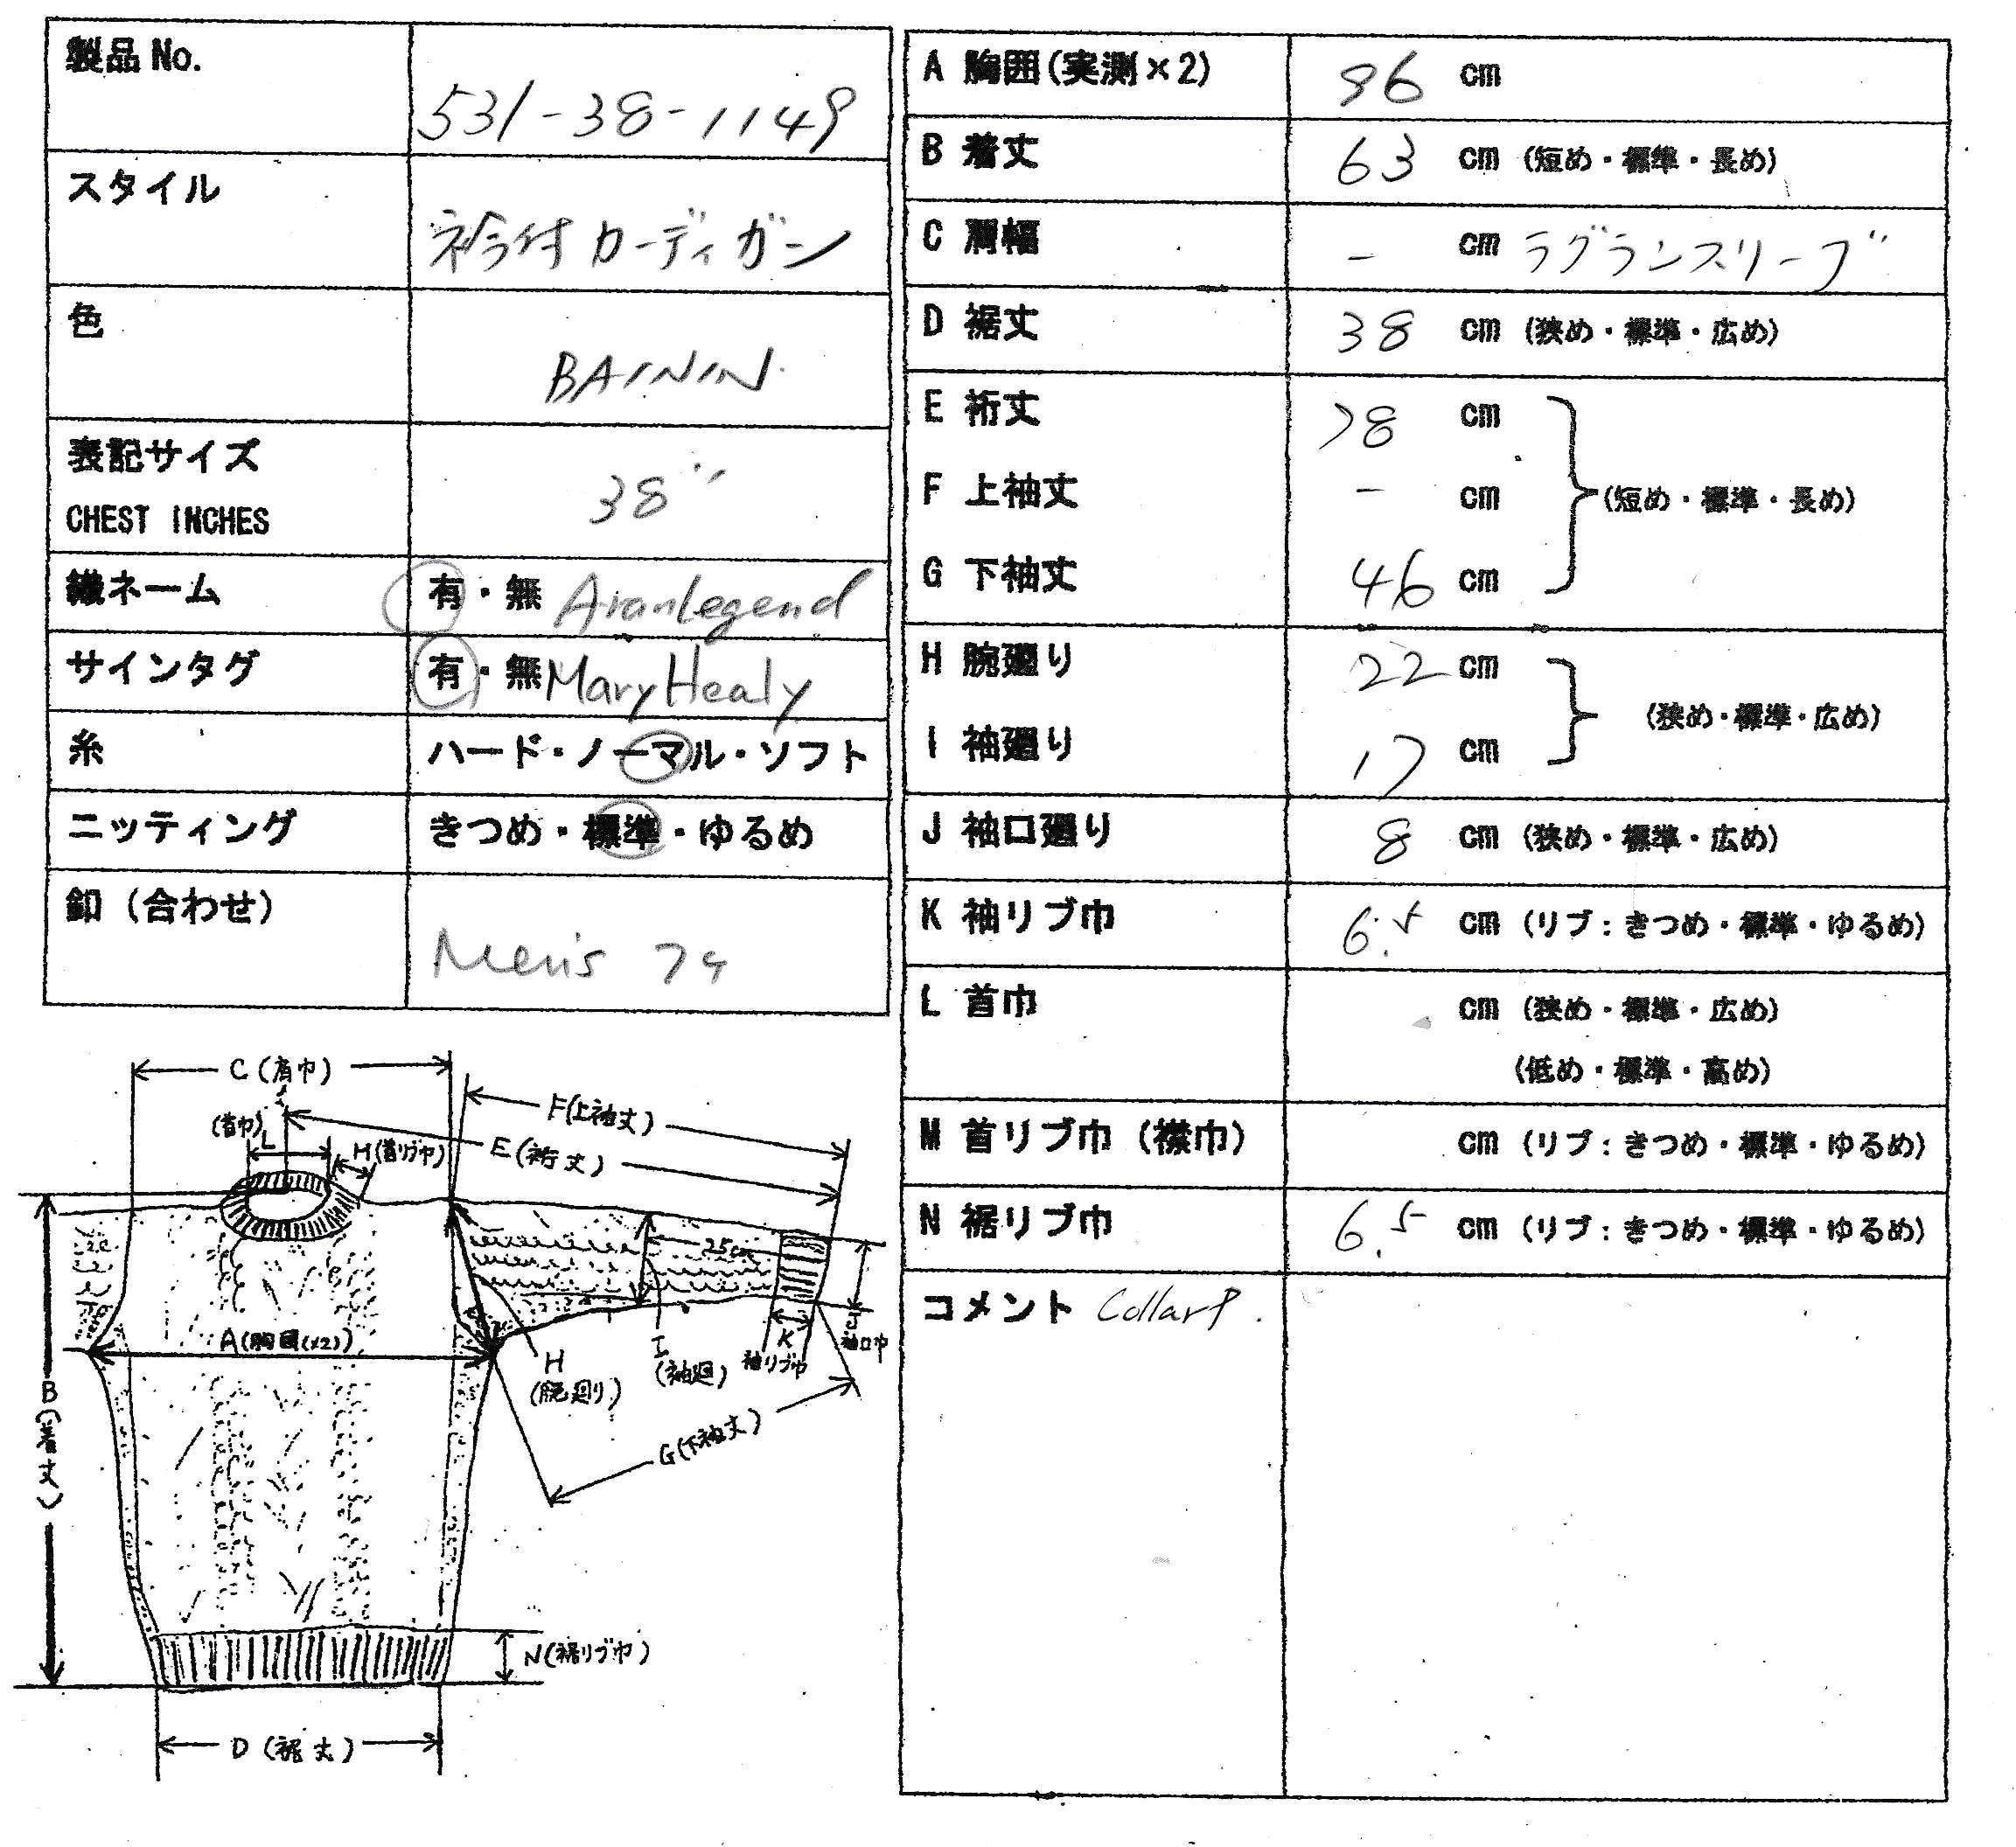 製品No. 531-38-1149
スタイル 衿付カーディガン
色 BAININ
表記サイズ
CHEST INCHES 38"
織ネーム 有・無 AranLegend
サインタグ 有・無 Mary Healy
糸 ハード・ノーマル・ソフト
ニッティング きつめ・標準・ゆるめ
釦（合わせ） Men's 7ケ
A 胸囲(実測×2) 96 cm
B 着丈 63 cm (短め・標準・長め)
C 肩幅 - cm ラグランスリーブ
D 裾丈 38 cm (狭め・標準・広め)
E 裄丈 78 cm
F 上袖丈 - cm (短め・標準・長め)
G 下袖丈 46 cm
H 腕廻り 22 cm
(狭め・標準・広め)
I 袖廻り 17 cm
J 袖口廻り 8 cm (狭め・標準・広め)
K 袖リブ巾 6.5 cm (リブ：きつめ・標準・ゆるめ)
L 首巾 cm (狭め・標準・広め)
(低め・標準・高め)
M 首リブ巾（襟巾） cm (リブ：きつめ・標準・ゆるめ)
N 裾リブ巾 6.5 cm (リブ：きつめ・標準・ゆるめ)
コメント Collar
C(肩巾)
F(上袖丈)
(首巾)
L
H(首リブ巾)
E(裄丈)
25cm
A(胸囲(×2))
B(着丈)
H
(腕廻り)
I
(袖廻)
K
袖リブ巾
J
袖口巾
G(下袖丈)
N(裾リブ巾)
D(裾丈)